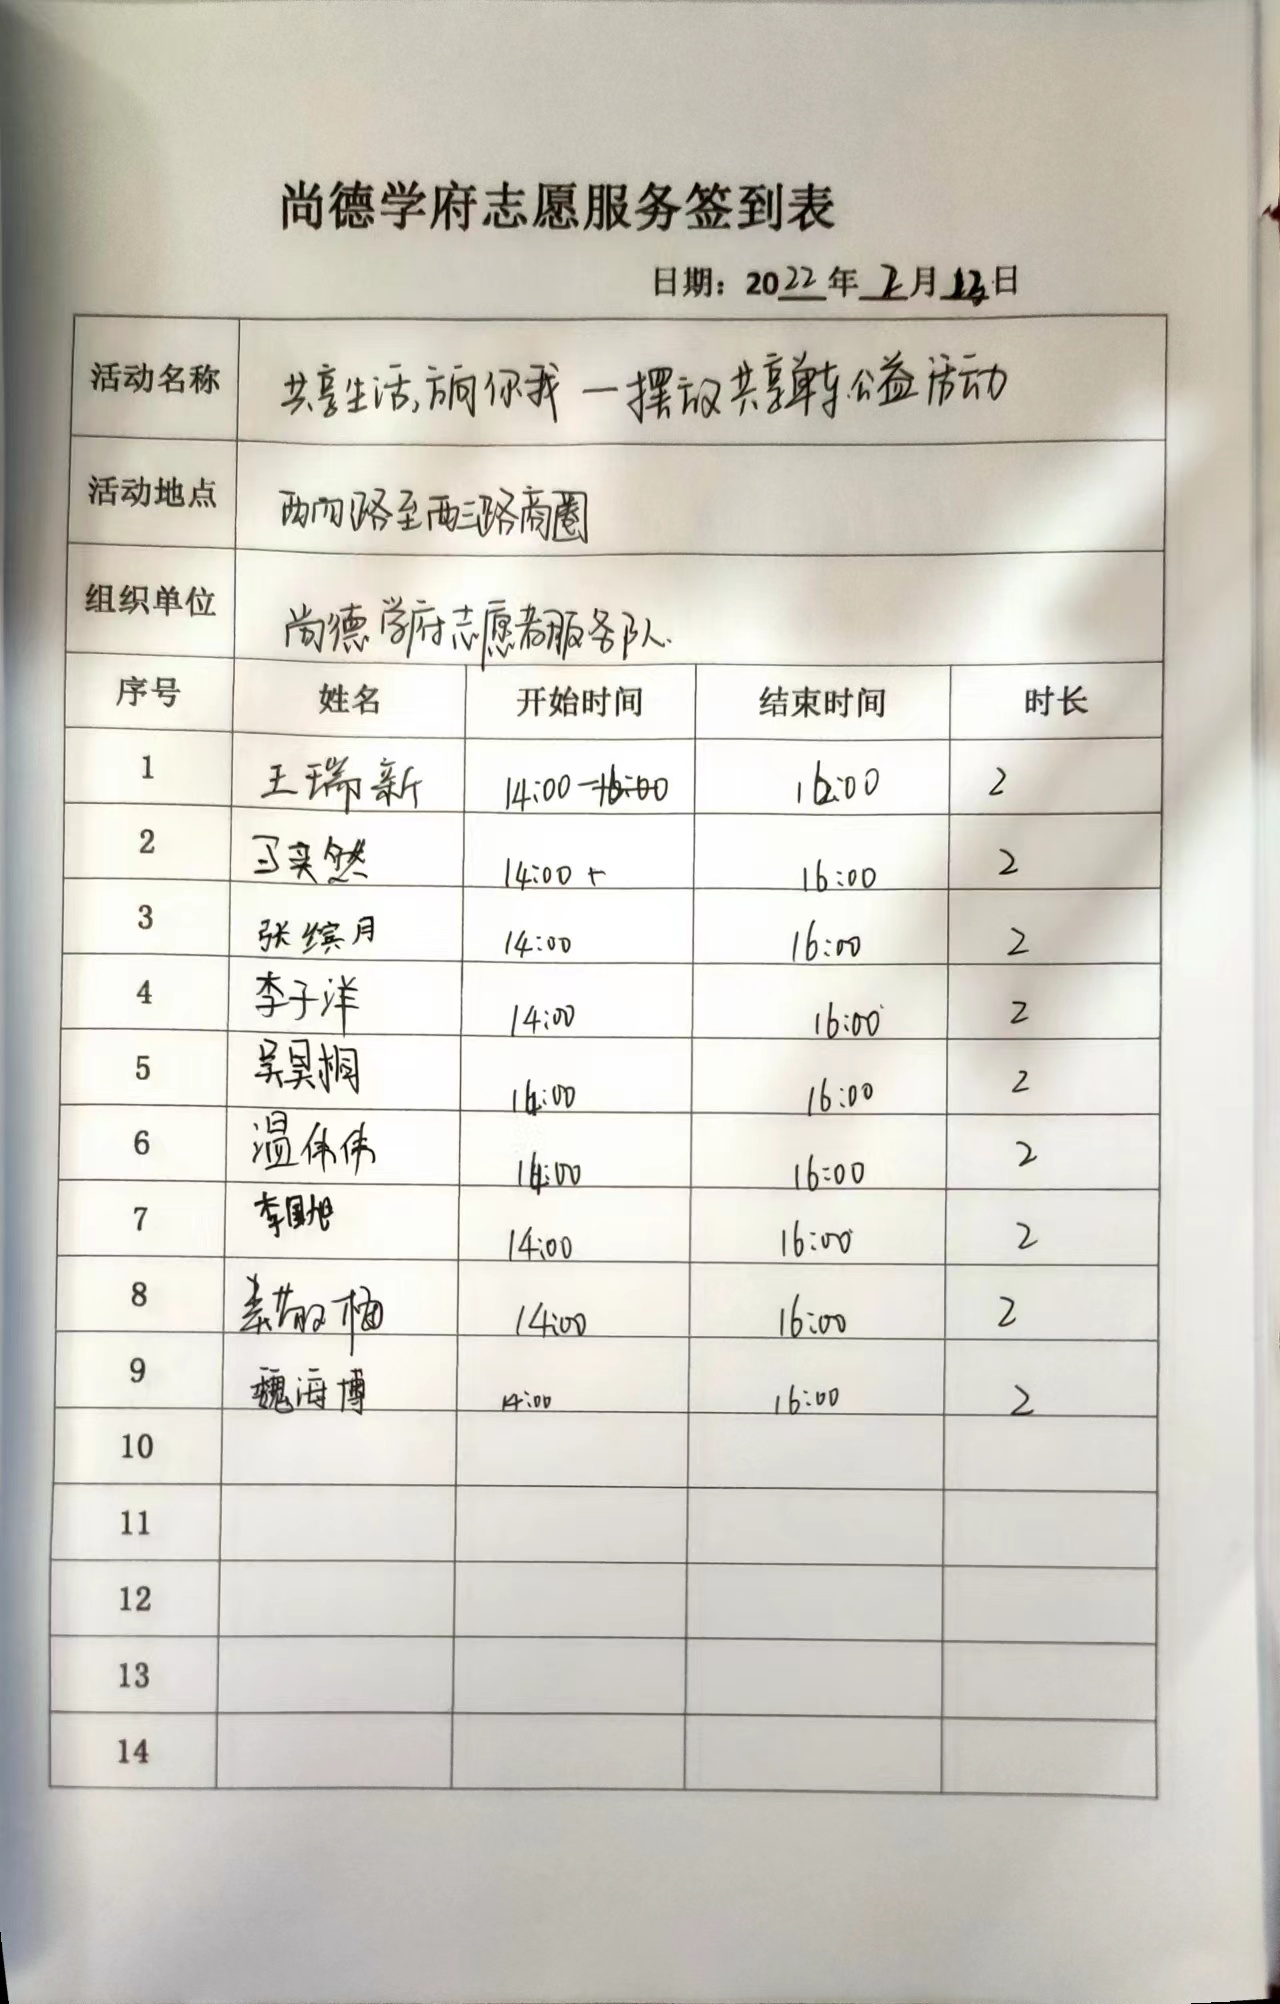 尚德学府志愿服务签到表
日期：2022年2月13日
活动名称 共享生活,方向你我 一摆放共享单车公益活动
活动地点 西四路至西三路商圈
组织单位 尚德学府志愿者服务队.
序号 姓名 开始时间 结束时间 时长
1 王瑞新 14:00 16:00 2
2 马奕然 14:00 16:00 2
3 张缤月 14:00 16:00 2
4 李子洋 14:00 16:00 2
5 吴昊桐 14:00 16:00 2
6 温伟伟 14:00 16:00 2
7 李国旭 14:00 16:00 2
8 14:00 16:00 2
9 魏海博 14:00 16:00 2
10
11
12
13
14